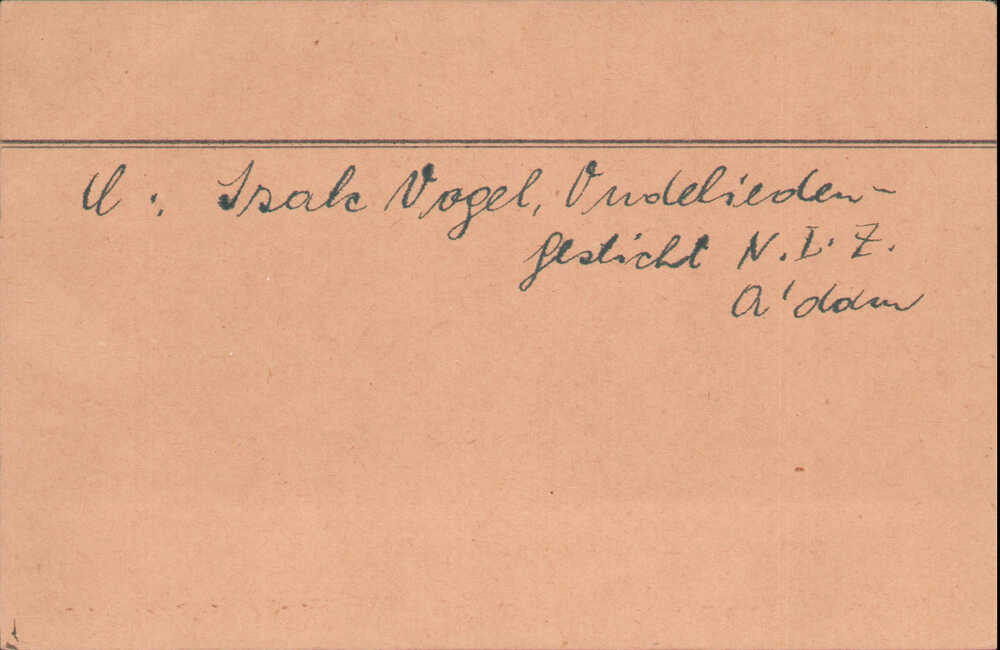 U: Isak Vogel, Oudelieden-
gesticht N.I.Z.
A'dam